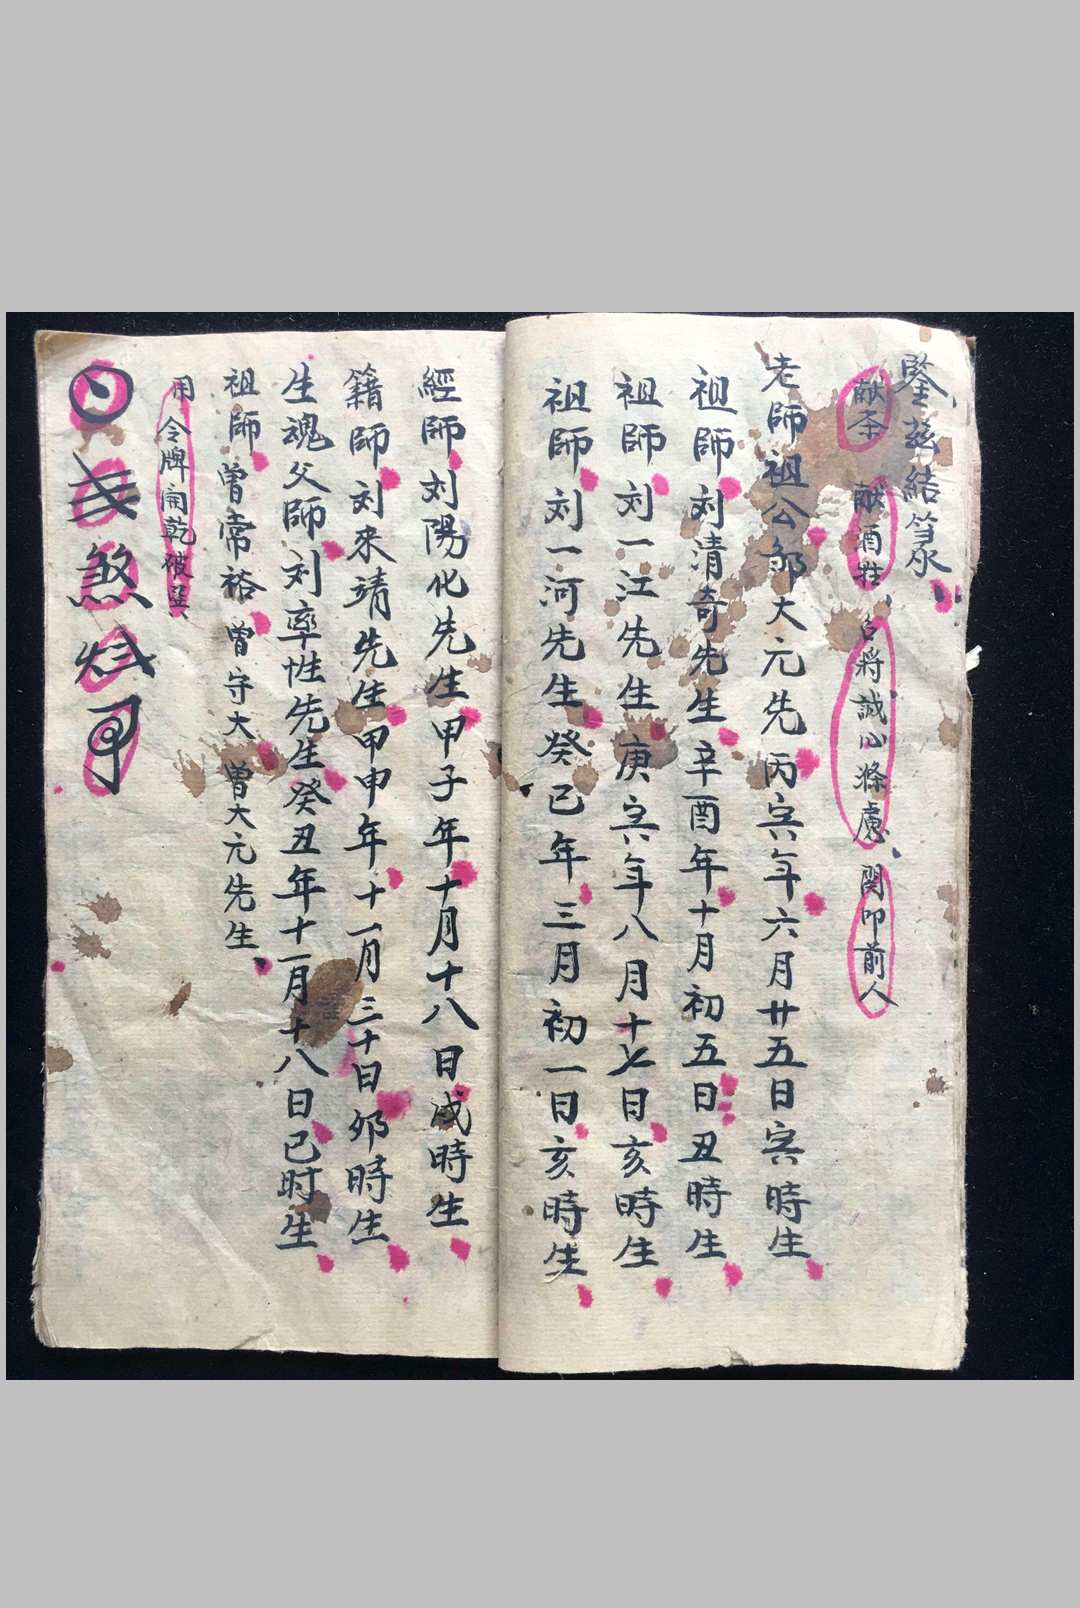 鑒兹結箓
献茶 献酒牲 召將誠心滌慮 関叩前人
老師祖公邹大元先丙寅年六月廿五日寅時生
祖師刘清奇先生辛酉年十月初五日丑時生
祖師刘一江先生庚寅年八月十七日亥時生
祖師刘一河先生癸己年三月初一日亥時生
經師刘陽化先生甲子年十月十八日戍時生
籍師刘來靖先生甲申年十一月三十日夘時生
生魂父師刘率性先生癸丑年十一月十八日己时生
祖師曾常裕曾守大曾大元先生
用令牌開乾被
煞